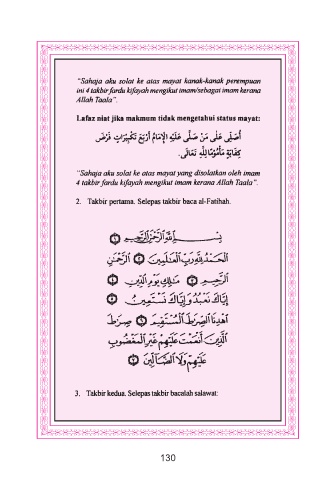 "Sahaja aku solat ke atas mayat kanak-kanak perempuan
ini 4 takbir fardu kifayah mengikut imam/sebagai imam kerana
Allah Taala".
Lafaz niat jika makmum tidak mengetahui status mayat:
أُصَلِّى عَلَى مَنْ صَلَّى عَلَيْهِ الإِمَامُ أَرْبَعَ تَكْبِيرَاتٍ فَرْضَ
كِفَايَةٍ مَأْمُومًا لِلّٰهِ تَعَالَى.
"Sahaja aku solat ke atas mayat yang disolatkan oleh imam
4 takbir fardu kifayah mengikut imam kerana Allah Taala".
2. Takbir pertama. Selepas takbir baca al-Fatihah.
بِسْمِ اللَّهِ الرَّحْمَٰنِ الرَّحِيمِ ١
الْحَمْدُ لِلَّهِ رَبِّ الْعَالَمِينَ ٢ الرَّحْمَٰنِ
الرَّحِيمِ ٣ مَالِكِ يَوْمِ الدِّينِ ٤
إِيَّاكَ نَعْبُدُ وَإِيَّاكَ نَسْتَعِينُ ٥
اهْدِنَا الصِّرَاطَ الْمُسْتَقِيمَ ٦ صِرَاطَ
الَّذِينَ أَنْعَمْتَ عَلَيْهِمْ غَيْرِ الْمَغْضُوبِ
عَلَيْهِمْ وَلَا الضَّالِّينَ ٧
3. Takbir kedua. Selepas takbir bacalah salawat:
130